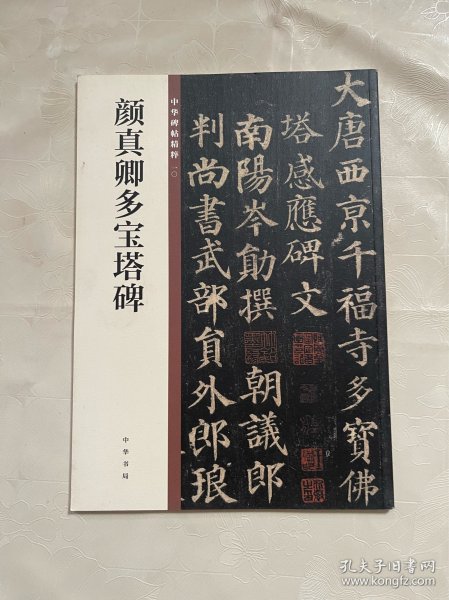 颜真卿多宝塔碑
中华书局
中华碑帖精粹 一〇
大唐西京千福寺多寶佛
塔感應碑文
南陽岑勛撰 朝議郎
判尚書武部貟外郎琅
孔夫子旧书网
www.kongfz.com